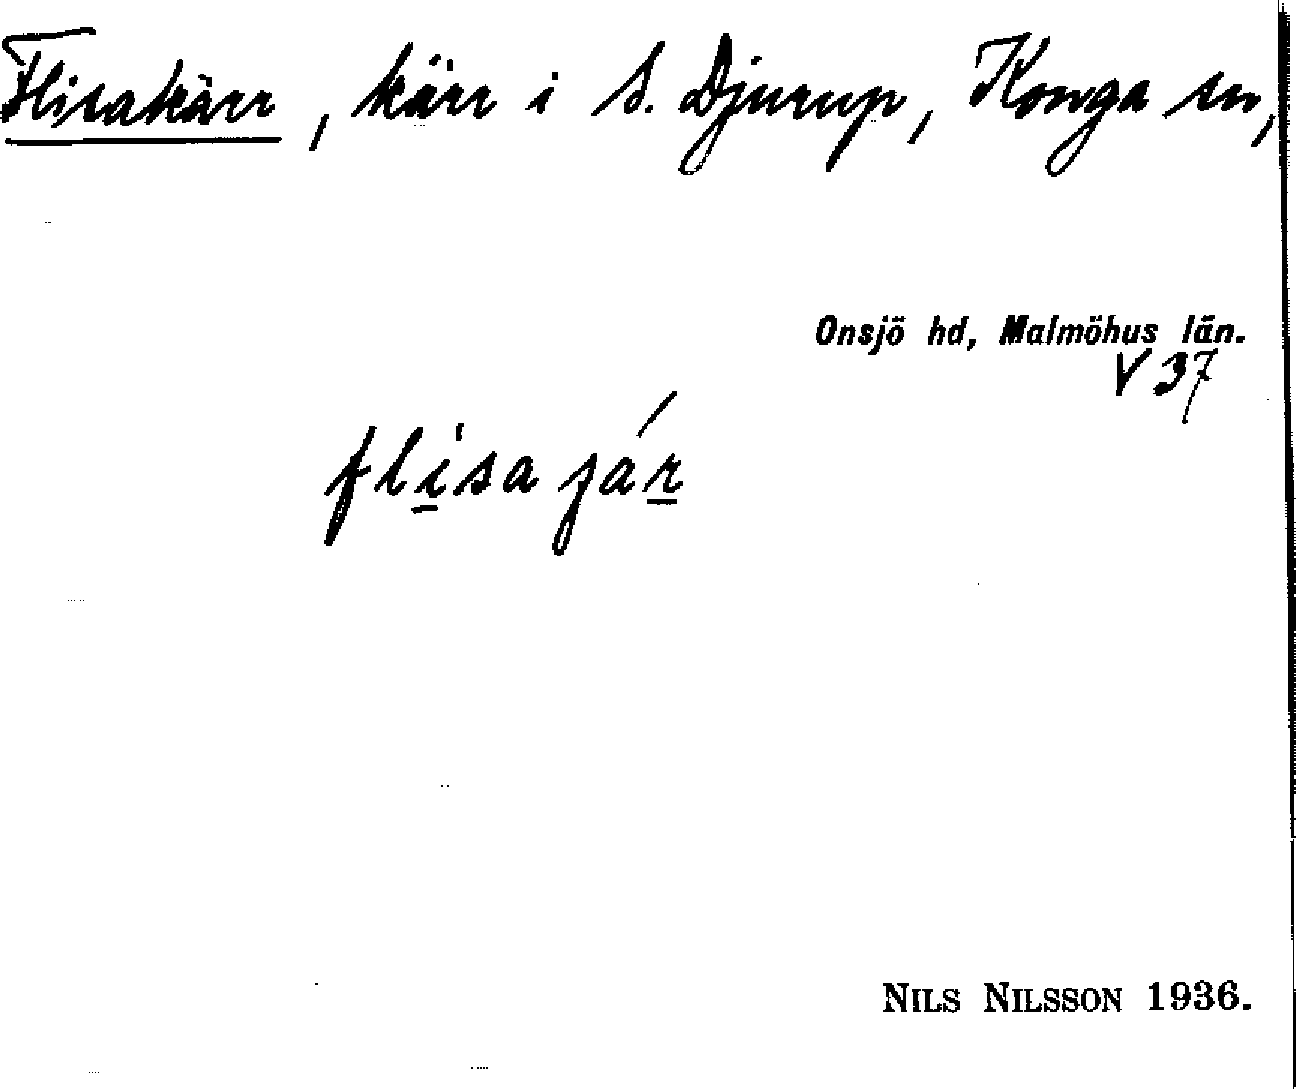 Flisakärr, kärr i S. Djurup, Konga sn,
Onsjö hd, Malmöhus län.
V 37
flisa jár
NILS NILSSON 1936.